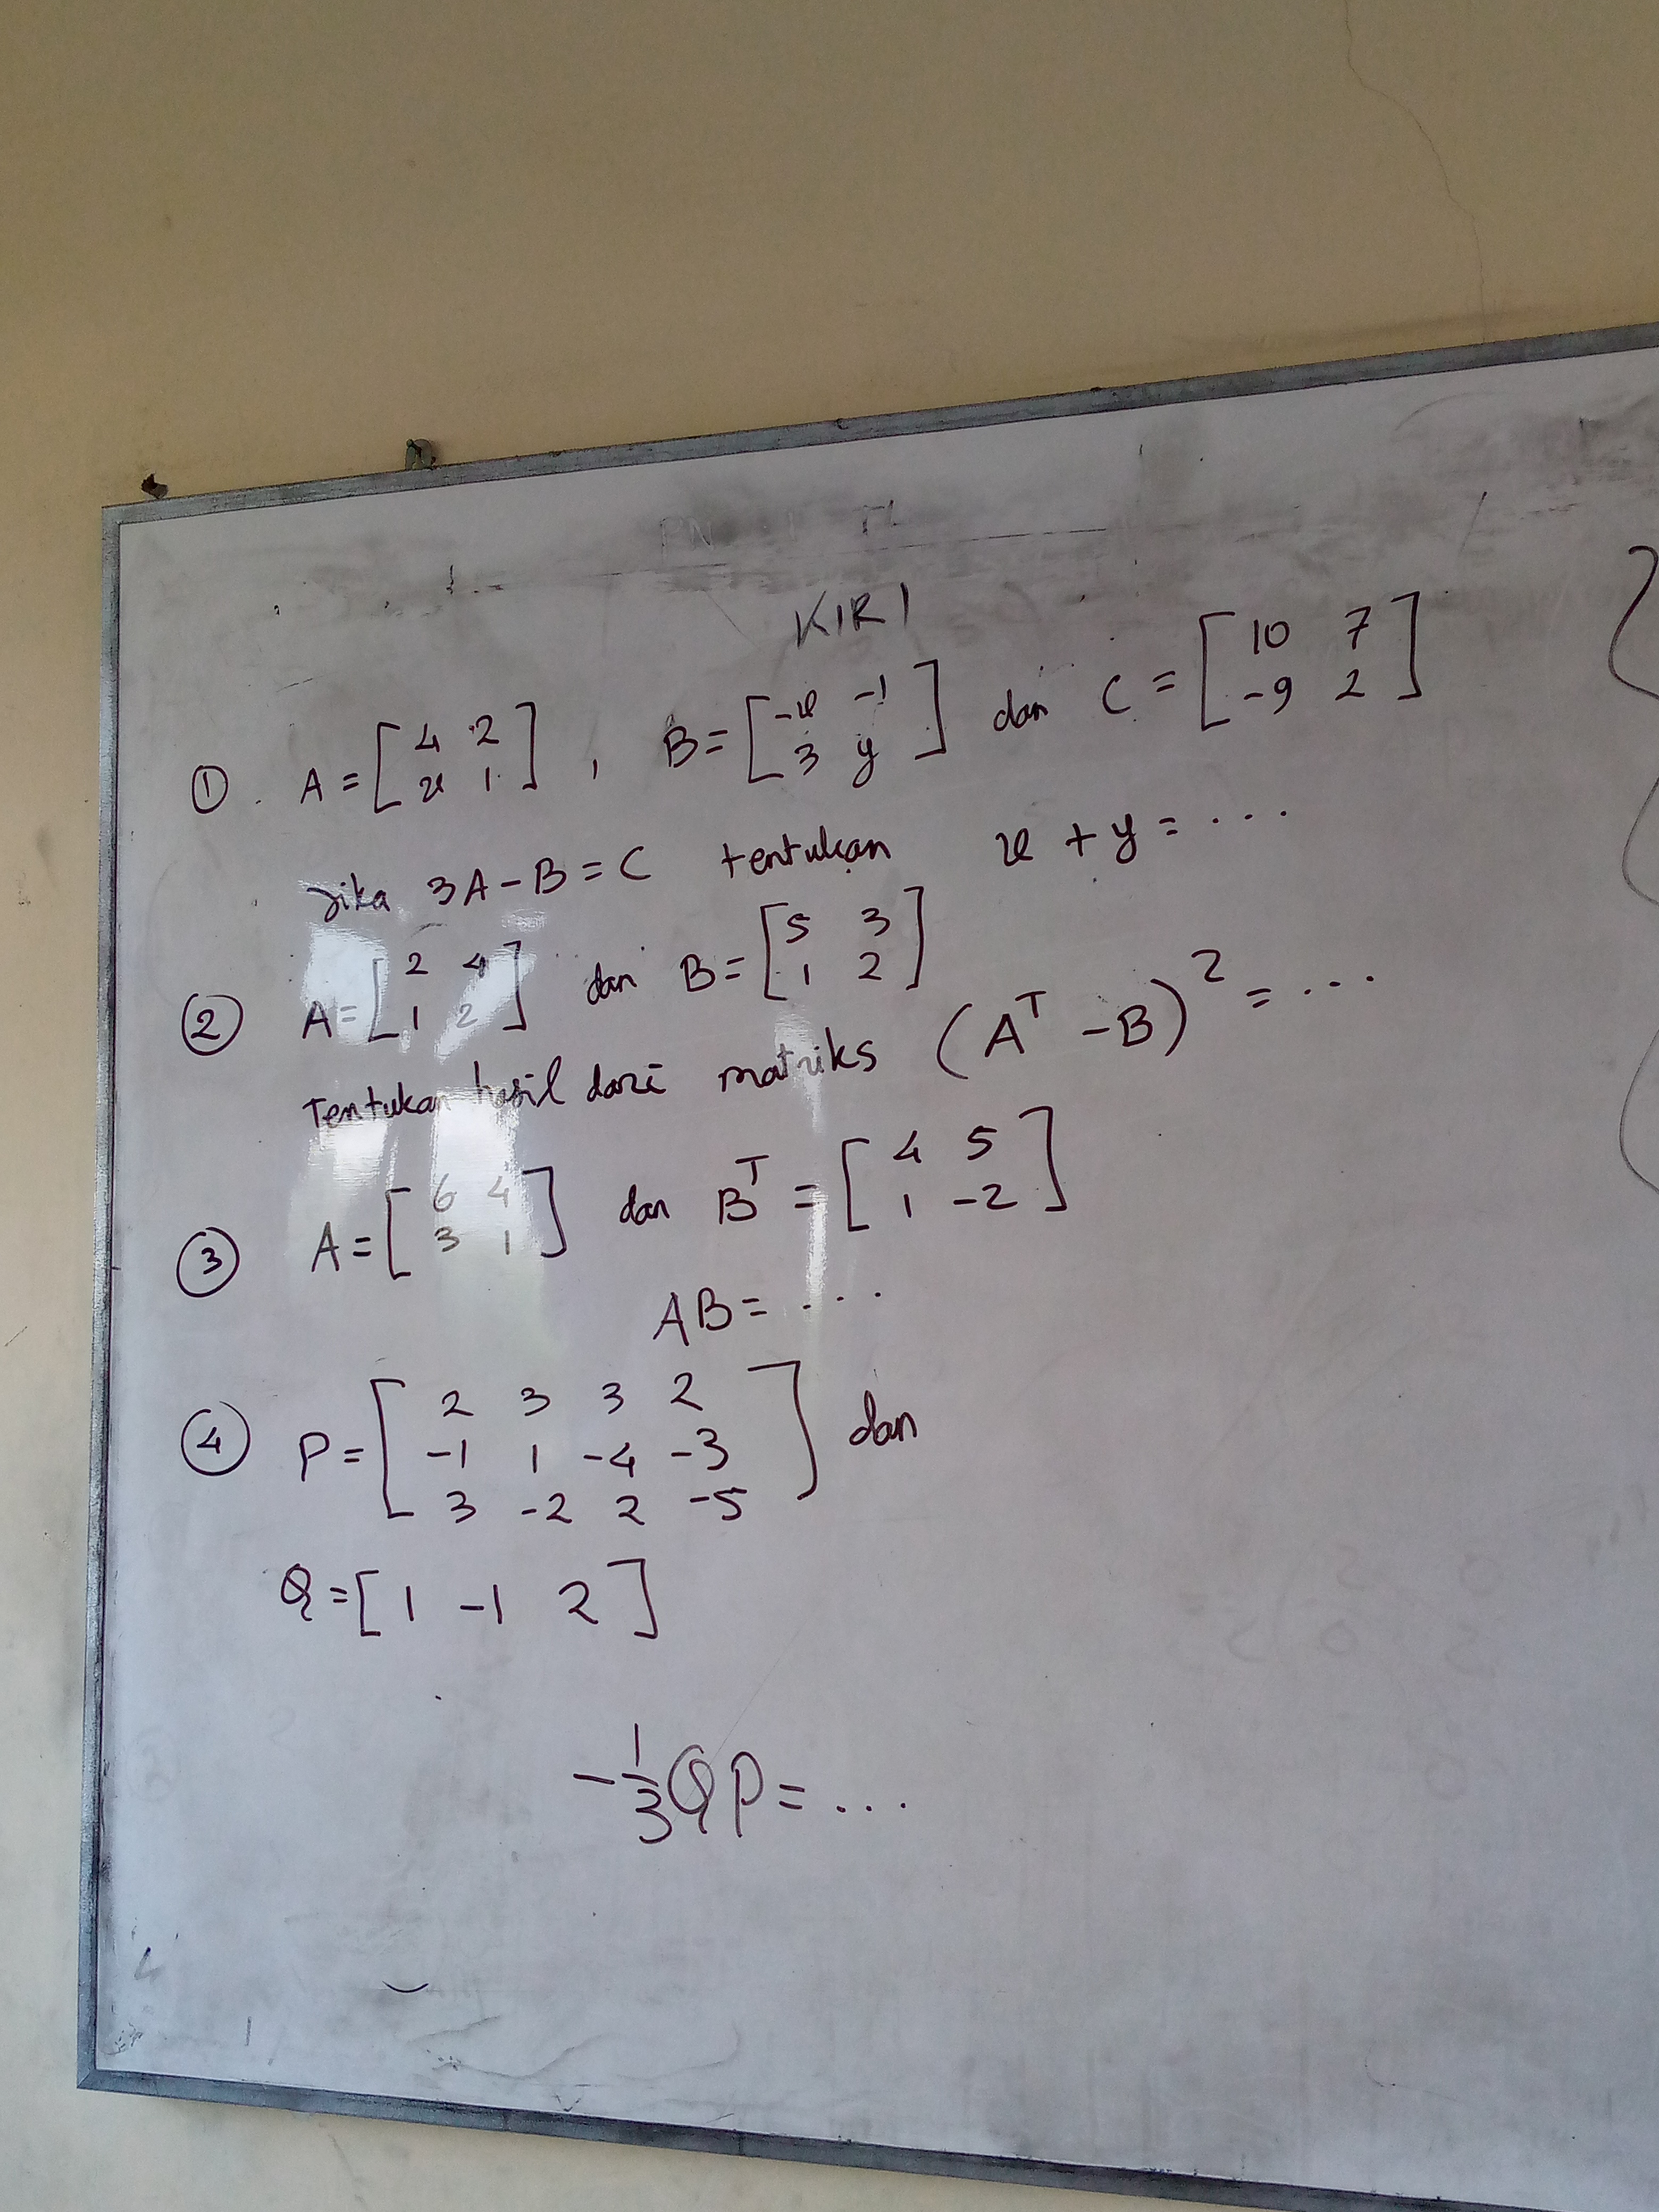 KIRI
① . A = [ 4 2 ] , B = [ -x -1 ] dan C = [ 10 7 ]
[ x 1 ] [ 3 y ] [ -9 2 ]
Jika 3A - B = C tentukan x + y = ...
② A = [ 2 4 ] dan B = [ 5 3 ]
[ 1 2 ] [ 1 2 ]
Tentukan hasil dari matriks (Aᵀ - B)² = ...
③ A = [ 6 4 ] dan Bᵀ = [ 4 5 ]
[ 3 1 ] [ 1 -2 ]
AB = ...
④ P = [ 2 3 3 2 ] dan
[ -1 1 -4 -3 ]
[ 3 -2 2 -5 ]
Q = [ 1 -1 2 ]
-1/3 QP = ...